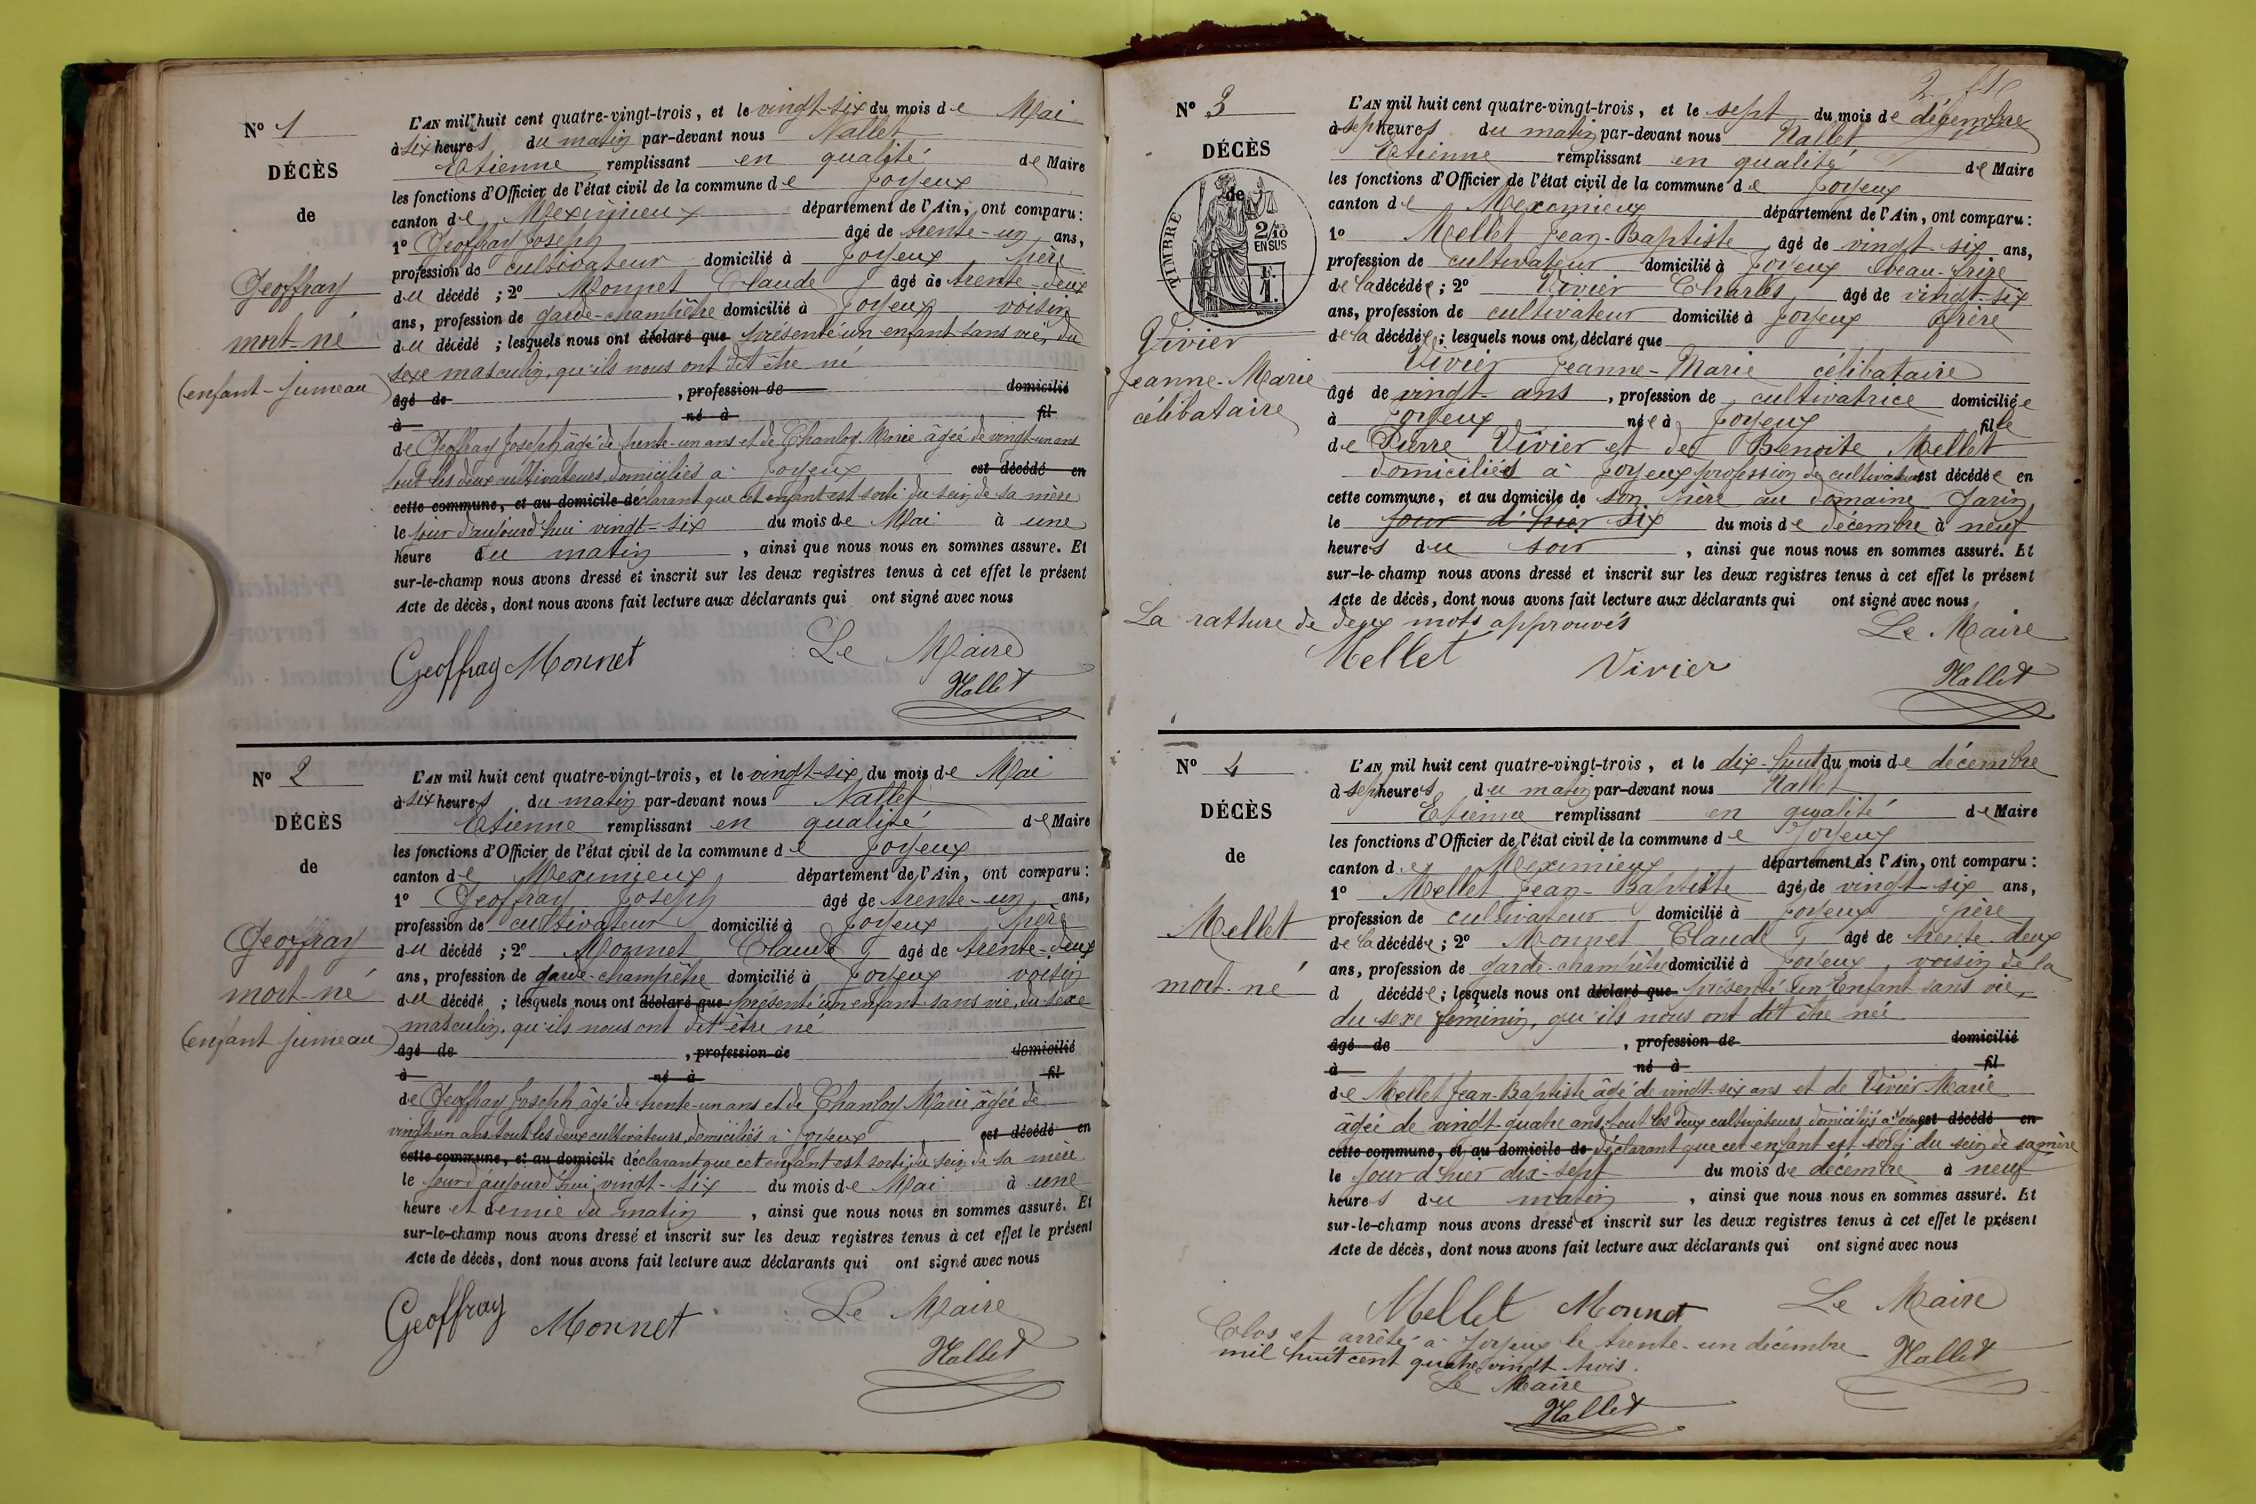 N° 1
DÉCÈS
de
Geoffray
mort-né
(enfant-jumeau)
L'AN mil huit cent quatre-vingt-trois, et le vingt-six du mois de Mai
à six heures du matin par-devant nous Nallet
Etienne remplissant en qualité de Maire
les fonctions d'Officier de l'état civil de la commune de Joyeux
canton de Meximieux département de l'Ain, ont comparu :
1° Geoffray Joseph âgé de trente-un ans,
profession de cultivateur domicilié à Joyeux père
du décédé ; 2° Monnet Claude âgé de trente-deux
ans, profession de garde-champêtre domicilié à Joyeux voisin
du décédé ; lesquels nous ont déclaré que présenté un enfant sans vie, du
sexe masculin, qu'ils nous ont dit être né
âgé de , profession de domicilié
à né à fil
de Geoffray Joseph âgé de trente-un ans et de Chanloy Marie âgée de vingt-un ans
tout les deux cultivateurs, domiciliés à Joyeux est décédé en
cette commune, et au domicile de déclarant que cet enfant est sorti du sein de sa mère
le jour d'aujourd'hui vingt-six du mois de Mai à une
heure du matin , ainsi que nous nous en sommes assuré. Et
sur-le-champ nous avons dressé et inscrit sur les deux registres tenus à cet effet le présent
Acte de décès, dont nous avons fait lecture aux déclarants qui ont signé avec nous
Geoffray Monnet Le Maire
Nallet
N° 2
DÉCÈS
de
Geoffray
mort-né
(enfant jumeau)
L'AN mil huit cent quatre-vingt-trois, et le vingt-six du mois de Mai
à six heures du matin par-devant nous Nallet
Etienne remplissant en qualité de Maire
les fonctions d'Officier de l'état civil de la commune de Joyeux
canton de Meximieux département de l'Ain, ont comparu :
1° Geoffray Joseph âgé de trente-un ans,
profession de cultivateur domicilié à Joyeux père
du décédé ; 2° Monnet Claude âgé de trente-deux
ans, profession de garde-champêtre domicilié à Joyeux voisin
du décédé ; lesquels nous ont déclaré que présenté un enfant sans vie, du sexe
masculin, qu'ils nous ont dit être né
âgé de , profession de domicilié
à né à fil
de Geoffray Joseph âgé de trente-un ans et de Chanloy Marie âgée de
vingt-un ans tout les deux cultivateurs, domiciliés à Joyeux est décédé en
cette commune, et au domicile déclarant que cet enfant est sorti du sein de sa mère
le jour d'aujourd'hui vingt-six du mois de Mai à une
heure et demie du matin , ainsi que nous nous en sommes assuré. Et
sur-le-champ nous avons dressé et inscrit sur les deux registres tenus à cet effet le présent
Acte de décès, dont nous avons fait lecture aux déclarants qui ont signé avec nous
Geoffray Monnet Le Maire
Nallet
N° 3
DÉCÈS
de
TIMBRE
2/10
EN SUS
Vivier
Jeanne-Marie
célibataire
L'AN mil huit cent quatre-vingt-trois, et le sept du mois de décembre
à sept heures du matin par-devant nous Nallet
Etienne remplissant en qualité de Maire
les fonctions d'Officier de l'état civil de la commune de Joyeux
canton de Meximieux département de l'Ain, ont comparu :
1° Mellet Jean-Baptiste âgé de vingt-six ans,
profession de cultivateur domicilié à Joyeux beau-frère
de la décédée ; 2° Vivier Charles âgé de vingt-six
ans, profession de cultivateur domicilié à Joyeux frère
de la décédée ; lesquels nous ont déclaré que
Vivier Jeanne-Marie célibataire
âgé de vingt ans , profession de cultivatrice domiciliée
à Joyeux née à Joyeux fille
de Pierre Vivier et de Benoite Mellet
domiciliés à Joyeux profession de cultivateurs est décédée en
cette commune, et au domicile de son père au domaine Jarin
le jour d'hier six du mois de décembre à neuf
heures du soir , ainsi que nous nous en sommes assuré. Et
sur-le-champ nous avons dressé et inscrit sur les deux registres tenus à cet effet le présent
Acte de décès, dont nous avons fait lecture aux déclarants qui ont signé avec nous
La rature de deux mots approuvés Le Maire
Mellet Vivier Nallet
N° 4
DÉCÈS
de
Mellet
mort-né
L'AN mil huit cent quatre-vingt-trois, et le dix-huit du mois de décembre
à sept heures du matin par-devant nous Nallet
Etienne remplissant en qualité de Maire
les fonctions d'Officier de l'état civil de la commune de Joyeux
canton de Meximieux département de l'Ain, ont comparu :
1° Mellet Jean-Baptiste âgé de vingt-six ans,
profession de cultivateur domicilié à Joyeux père
de la décédée ; 2° Monnet Claude âgé de trente-deux
ans, profession de garde-champêtre domicilié à Joyeux voisin de la
d décédée ; lesquels nous ont déclaré que présenté un enfant sans vie,
du sexe féminin, qu'ils nous ont dit être née
âgé de , profession de domicilié
à né à fil
de Mellet Jean-Baptiste âgé de vingt-six ans et de Vivier Marie
âgée de vingt-quatre ans, tout les deux cultivateurs domiciliés à est décédé en
cette commune, et au domicile de déclarant que cet enfant est sorti du sein de sa mère
le jour d'hier dix-sept du mois de décembre à neuf
heures du matin , ainsi que nous nous en sommes assuré. Et
sur-le-champ nous avons dressé et inscrit sur les deux registres tenus à cet effet le présent
Acte de décès, dont nous avons fait lecture aux déclarants qui ont signé avec nous
Mellet Monnet Le Maire
Nallet
Clos et arrêté à Joyeux le trente-un décembre
mil huit cent quatre vingt trois.
Le Maire
Nallet